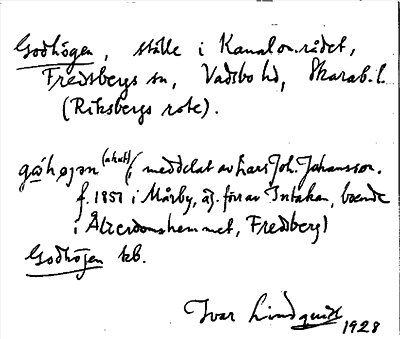 Godhögen, ställe i Kanalområdet,
Fredsbergs sn, Vadsbo hd, Skarab. l.
(Riksbergs rote).
(akut) (meddelat av Lars Joh. Johansson.
f. 1857 i Mårby, äg. förr av Intakan, boende
i Ålderdomshemmet, Fredsberg)
Godhögen kb.
Ivar Lindquist 1928